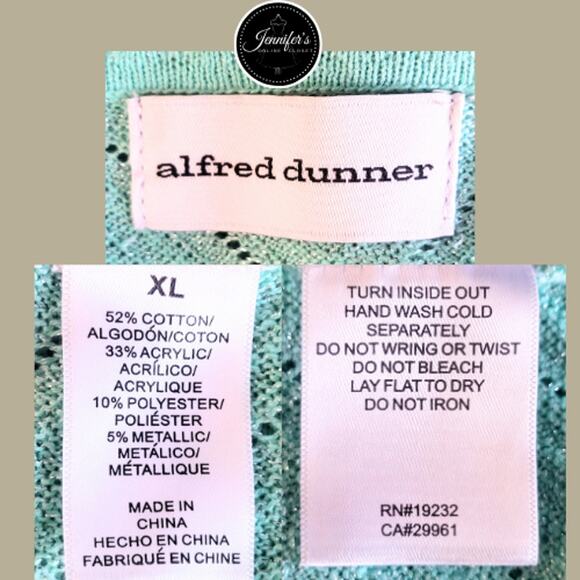 Jennifer's
ONLINE CLOSET
alfred dunner
XL
52% COTTON/
ALGODÓN/COTON
33% ACRYLIC/
ACRÍLICO/
ACRYLIQUE
10% POLYESTER/
POLIÉSTER
5% METALLIC/
METÁLICO/
MÉTALLIQUE
MADE IN
CHINA
HECHO EN CHINA
FABRIQUÉ EN CHINE
TURN INSIDE OUT
HAND WASH COLD
SEPARATELY
DO NOT WRING OR TWIST
DO NOT BLEACH
LAY FLAT TO DRY
DO NOT IRON
RN#19232
CA#29961